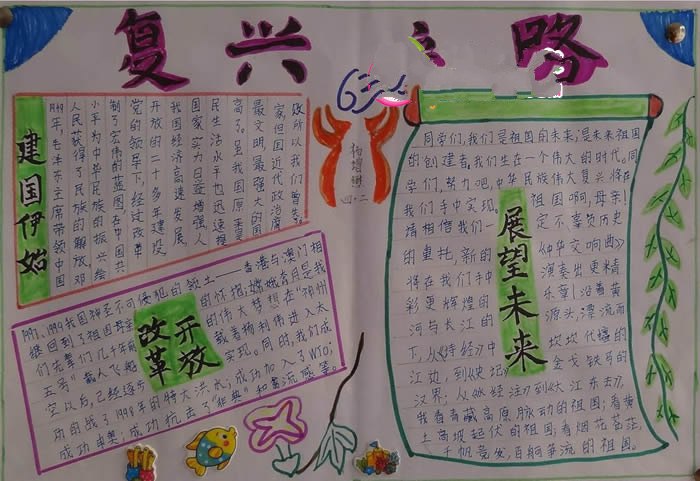 复兴 路
建国伊始
1949年，毛泽东主席带领中国
人民获得了民族的解放，邓
小平为中华民族的振兴绘
制了宏伟的蓝图在中国共
党的领导下，经过改革
开放的二十多年建设
我国经济高速发展，
国家实力日益增强人
民生活水平也迅速提
高了。虽我国原来是
最文明最强大的国
家但因近代政治腐
败所以我们曾失
四·二
改革开放
1997、1999我国神圣不可侵犯的领土——香港与澳门相
继回到了祖国母亲的怀抱；嫦娥奔月是我
们先辈们几千年前的伟大梦想在“神州
五号”载人飞船载着杨利伟进入太
空以后，已经逐步实现。同时，我们成
功的战了1998年的特大洪水；成功加入了WTO；
成功申奥；成功抗击了“非典”和禽流感等。
展望未来
同学们，我们是祖国的未来；是未来祖国
的创建者。我们生在一个伟大的时代。同
学们，努力吧，中华民族伟大复兴将在
我们手中实现。祖国啊，母亲！
请相信我们一定不辜负历史
的重托，新的《中华交响曲》
将在我们手中演奏出更精
彩更辉煌的乐章！沿着黄
河与长江的源头，漂流而
下，从《诗经》中坎坎伐檀的
江边，到《史记》金戈铁马的
汉界，从《水经注》到《大江东去》，
我看青藏高原脉动的祖国；看黄
土高坡起伏的祖国；看烟花苍茫，
千帆竞发，百舸争流的祖国。